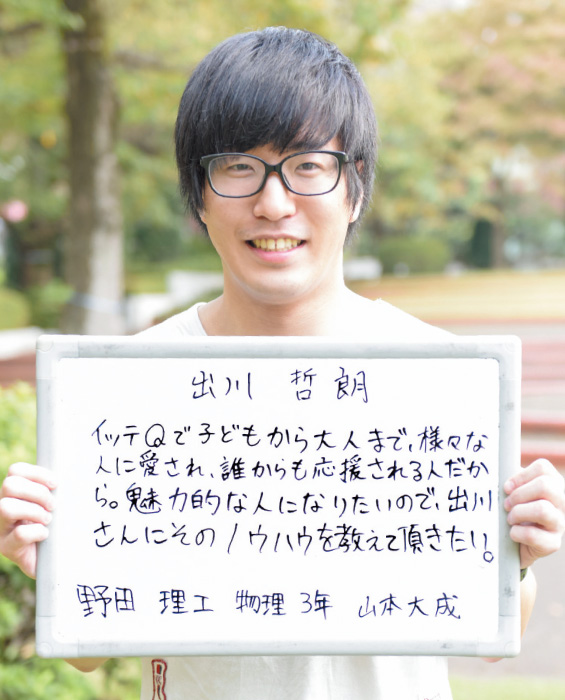 出川 哲朗
イッテQで子どもから大人まで、様々な
人に愛され、誰からも応援される人だか
ら。魅力的な人になりたいので、出川
さんにそのノウハウを教えて頂きたい。
野田 理工 物理 3年 山本大成